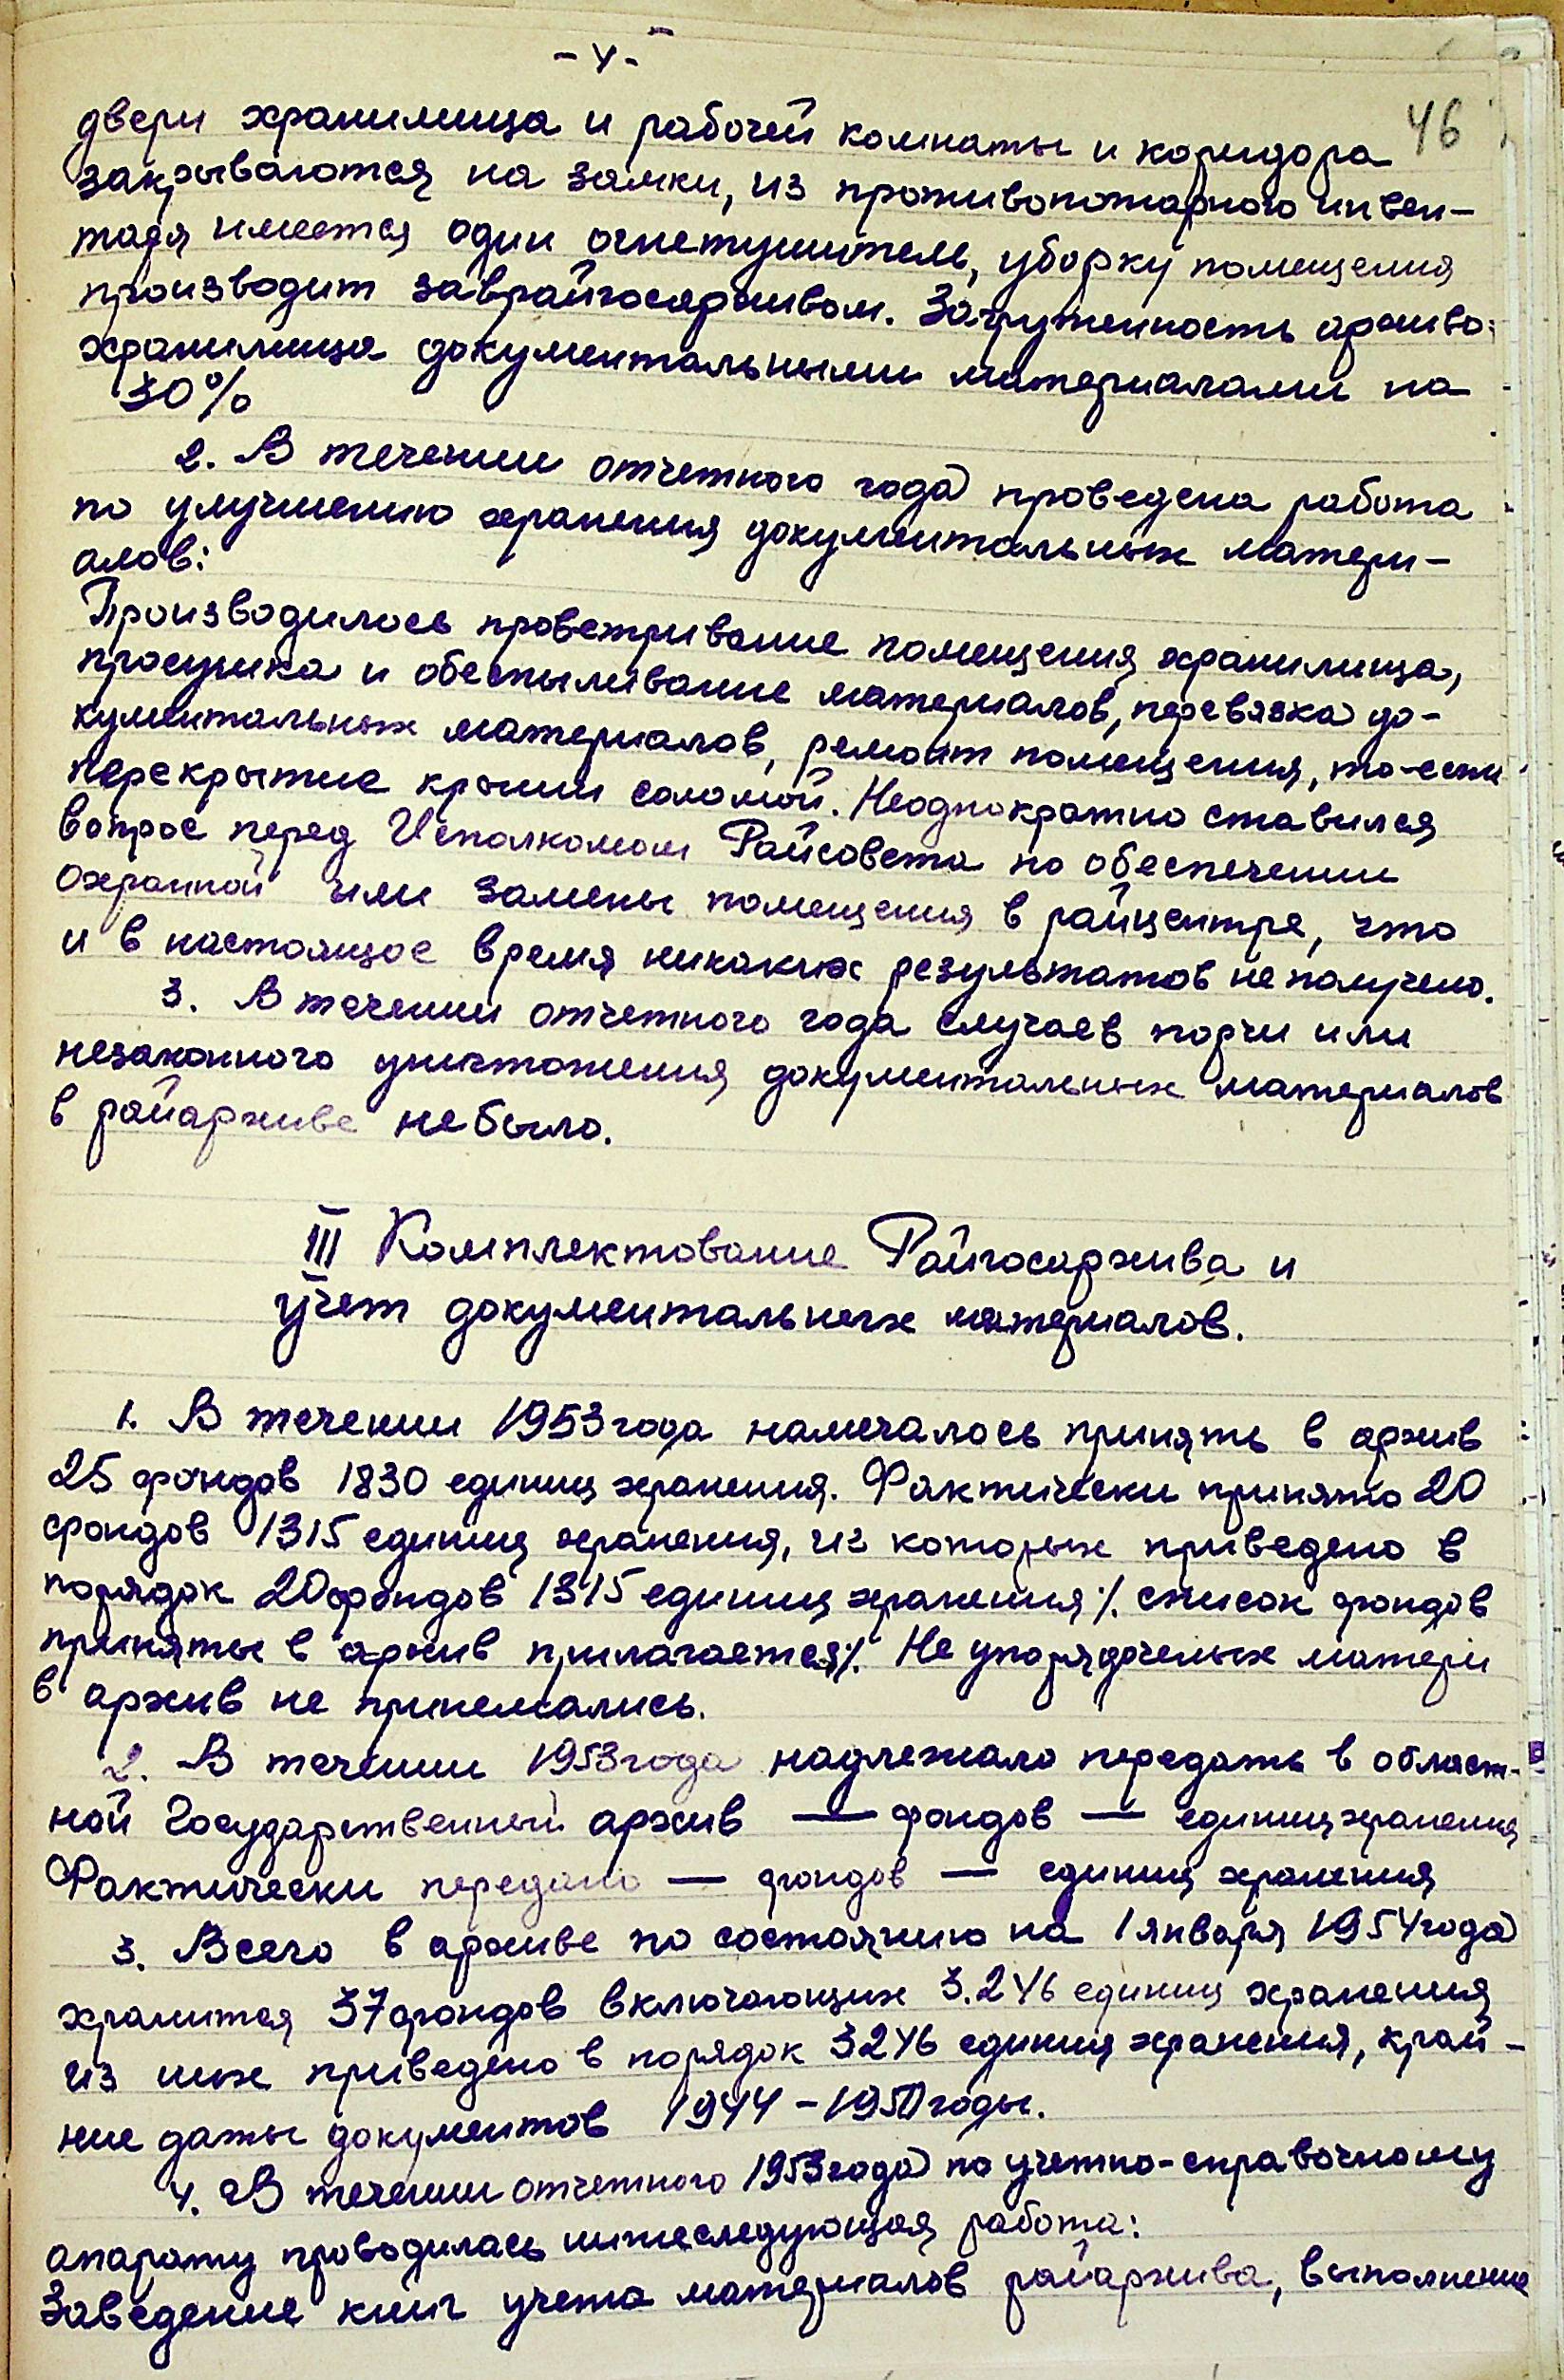 - 4 -
46
двери хранилища и рабочей комнаты и коридора
закрываются на замки, из противопожарного инвен-
таря имеется один огнетушитель, уборку помещения
производит заврайгосархивом. Загруженность архиво-
хранилища документальными материалами на
30%
2. В течении отчетного года проведена работа
по улучшению хранения документальных матери-
алов:
Производилось проветривание помещения хранилища,
просушка и обеспыливание материалов, перевязка до-
кументальных материалов, ремонт помещения, то-есть
перекрытие крыши соломой. Неоднократно ставился
вопрос перед Исполкомом Райсовета по обеспечении
охранной или замены помещения в райцентре, что
и в настоящее время никаких результатов не получено.
3. В течении отчетного года случаев порчи или
незаконного уничтожения документальных материалов
в райархиве не было.
III Комплектование Райгосархива и
учет документальных материалов.
1. В течении 1953 года намечалось принять в архив
25 фондов 1830 единиц хранения. Фактически принято 20
фондов 1315 единиц хранения, из которых приведено в
порядок 20 фондов 1315 единиц хранения ٪. список фондов
приняты в архив прилагается ٪. Не упорядоченых матери
в архив не принемались.
2. В течении 1953 года надлежало передать в област-
ной Государственный архив — фондов — единиц хранения
Фактически передано — фондов — единиц хранения
3. Всего в архиве по состоянию на 1 января 1954 года
хранится 37 фондов включающих 3.246 единиц хранения
из них приведено в порядок 3246 единиц хранения, край-
ние даты документов 1944 - 1950 годы.
4. В течении отчетного 1953 года по учетно-справочному
апарату проводилась нижеследующая работа:
Заведение книг учета материалов райархива, выполнение